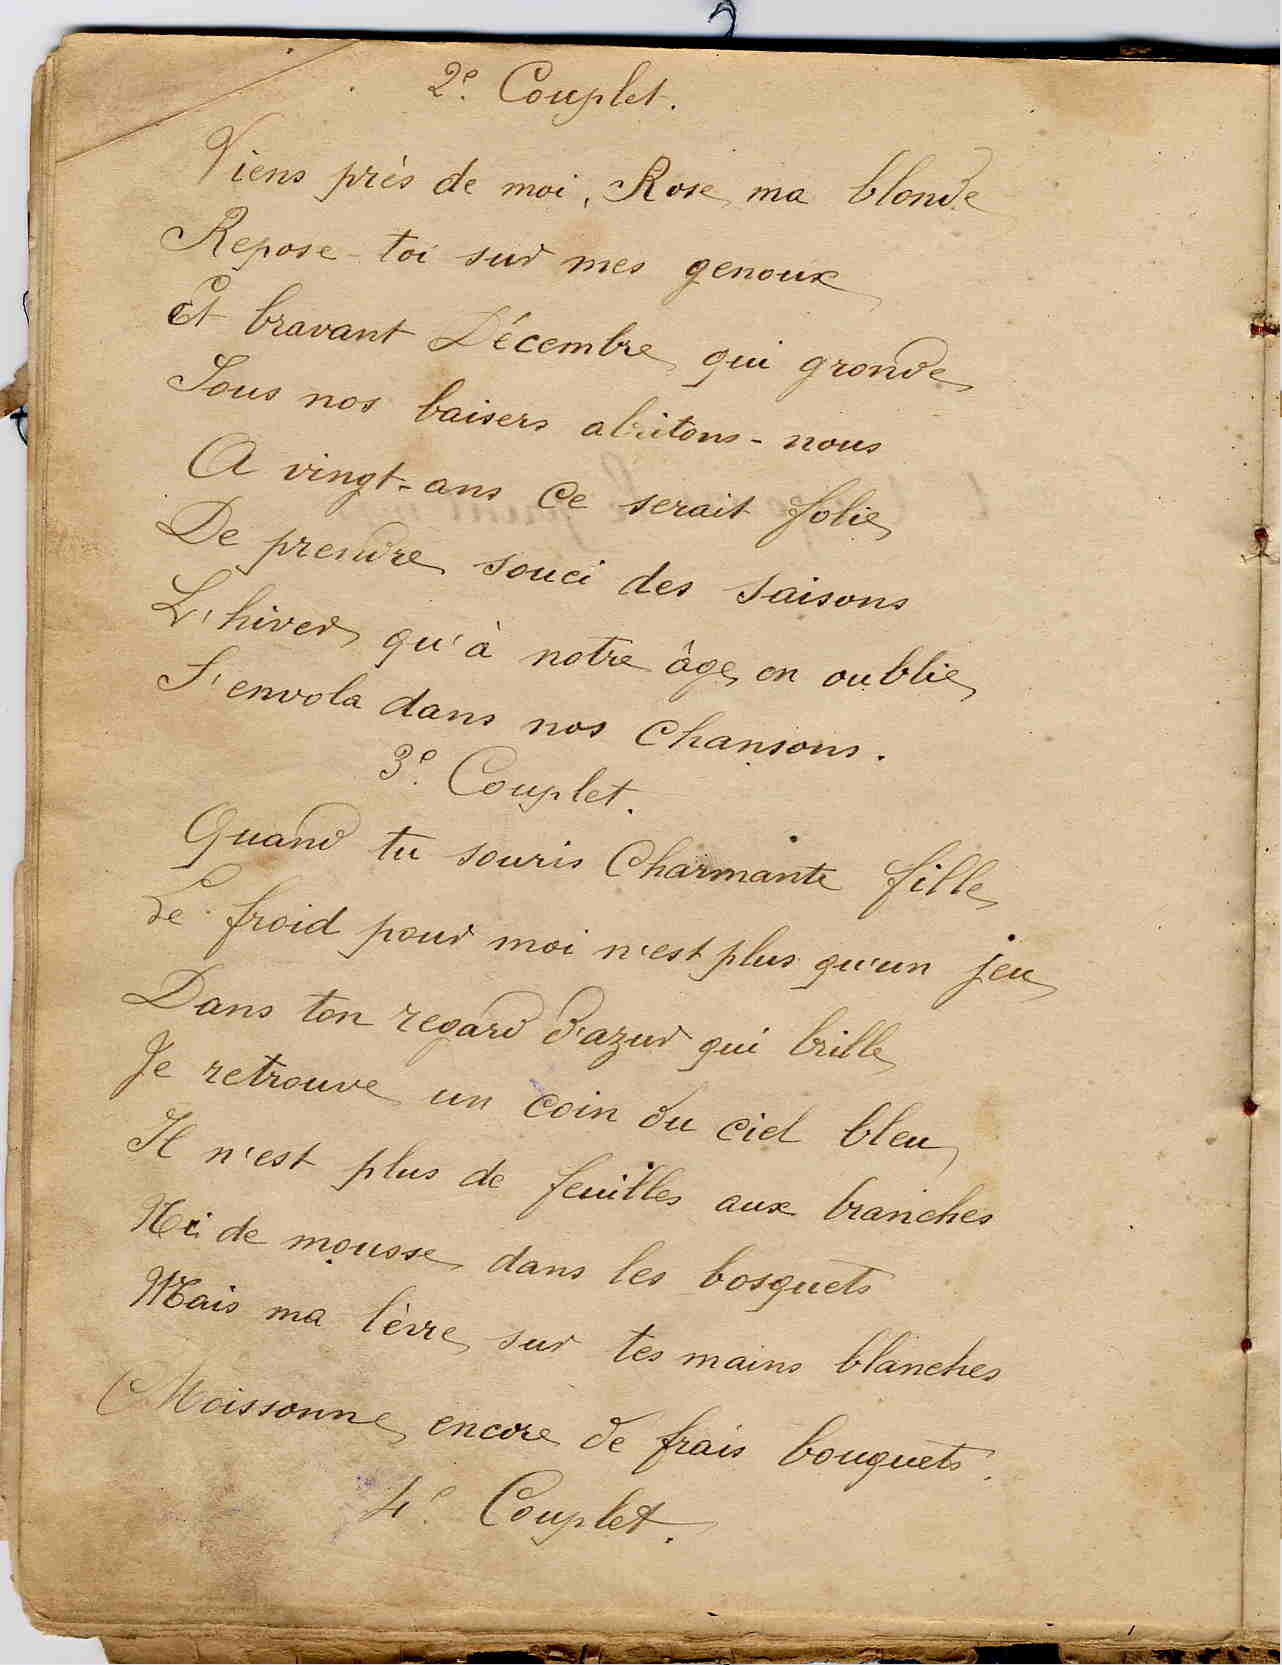 2e. Couplet.
Viens près de moi, Rose ma blonde
Repose-toi sur mes genoux
Et bravant Décembre qui gronde
Sous nos baisers abritons-nous
A vingt-ans ce serait folie
De prendre souci des saisons
L'hiver qu'à notre âge on oublie
S'envola dans nos chansons.
3e. Couplet.
Quand tu souris Charmante fille
Le froid pour moi n'est plus qu'un jeu
Dans ton regard d'azur qui brille
Je retrouve un coin du ciel bleu
Il n'est plus de feuilles aux branches
Ni de mousse dans les bosquets
Mais ma lèvre sur tes mains blanches
Moissonne encore de frais bouquets.
4e. Couplet.